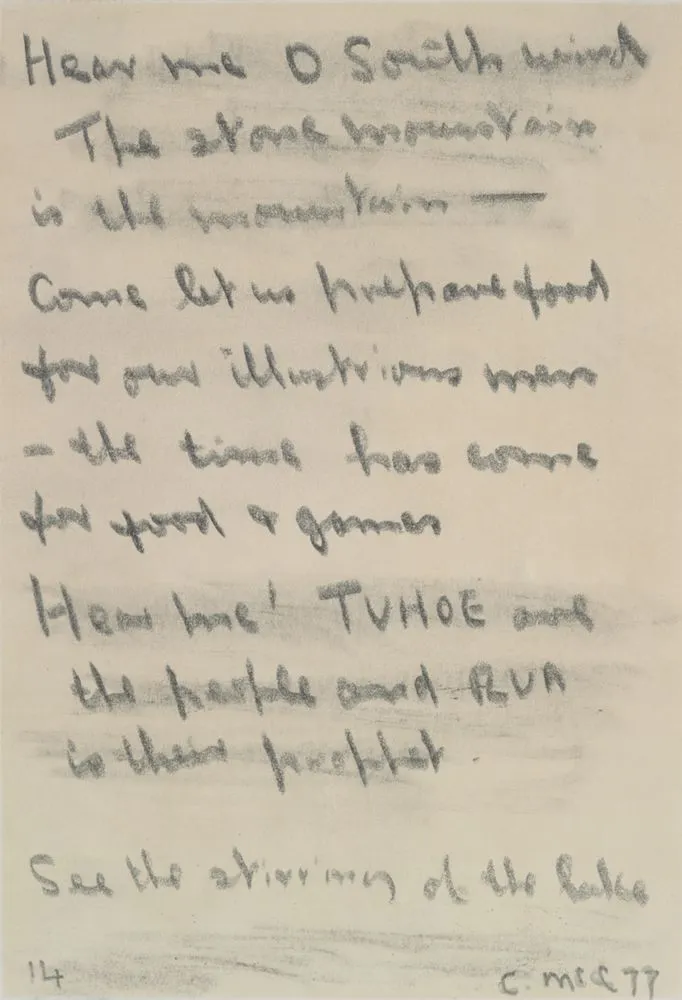 Hear me O South wind
The stone mountain
is the mountain —
Come let us prepare food
for our illustrious men
- the time has come
for food & games
Hear me! TUHOE are
the people and RUA
is their prophet.
See the stirring of the lake
14
C. McC 77